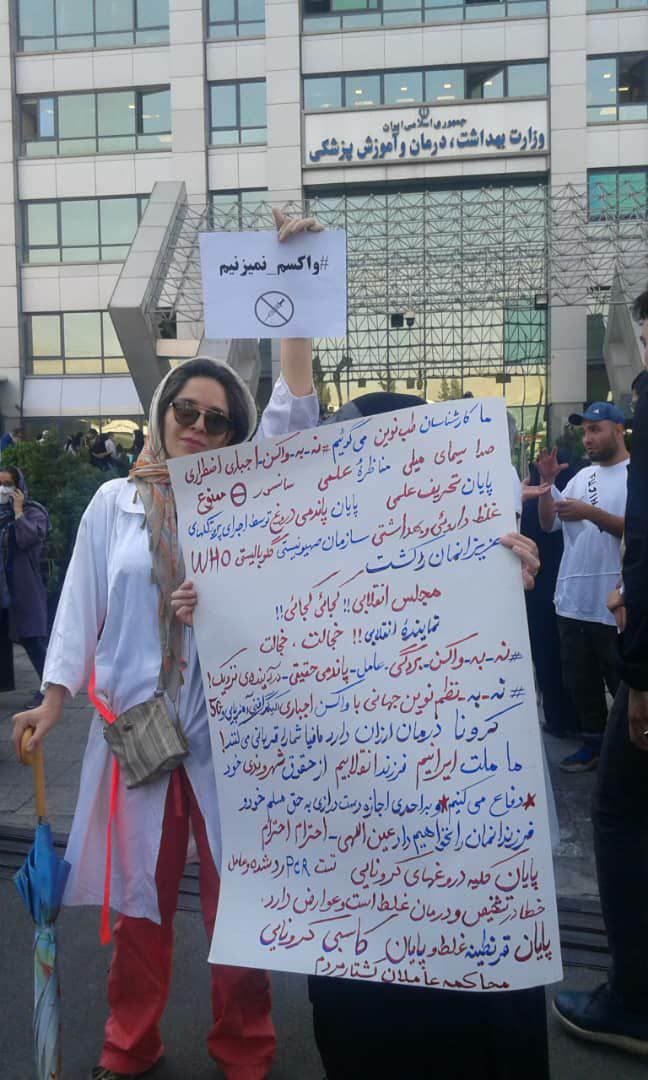 جمهوری اسلامی ایران
وزارت بهداشت، درمان و آموزش پزشکی
#واکسم_نمیزنیم
ما کارشناسان طب نوین می‌گویئم #نه-به-واکسن-اجباری اضطراری
صدا سیمای میلی مناظره علمی سانسور ممنوع
پایان تحریف علمی پایان پاندمی دروغ توسط اجرای پروتکلهای
غلط داروئی و بهداشتی سازمان صهیونیستی گلوبالیستی WHO
عزیزانمان را کشت
مجلس انقلابی!! کجائی کجائی!!
نماینده انقلابی!! خجالت، خجالت
#نه-به-واکسن-بردگی-عامل-پاندمی حقیقی-در آینده‌ی نزدیک!
#نه-به-نظم نوین جهانی با واکسن اجباری 5G
کرونا درمان ارزان دارد مافیا شما را قربانی می‌کنند!
ما ملت ایرانیم فرزند انقلابیم از حقوق شهروندی خود
دفاع می‌کنیم و به احدی اجازه دست درازی به حق مسلم خود و
فرزندانمان را نخواهیم داد عین اللهی-احترام احترام
پایان کلیه دروغهای کرونایی تست PCR رد شده و عامل
خطا در تشخیص و درمان غلط است و عوارض دارد.
پایان قرنطینه غلط و پایان کاسبی کرونایی
محاکمه عاملان کشتار مردم